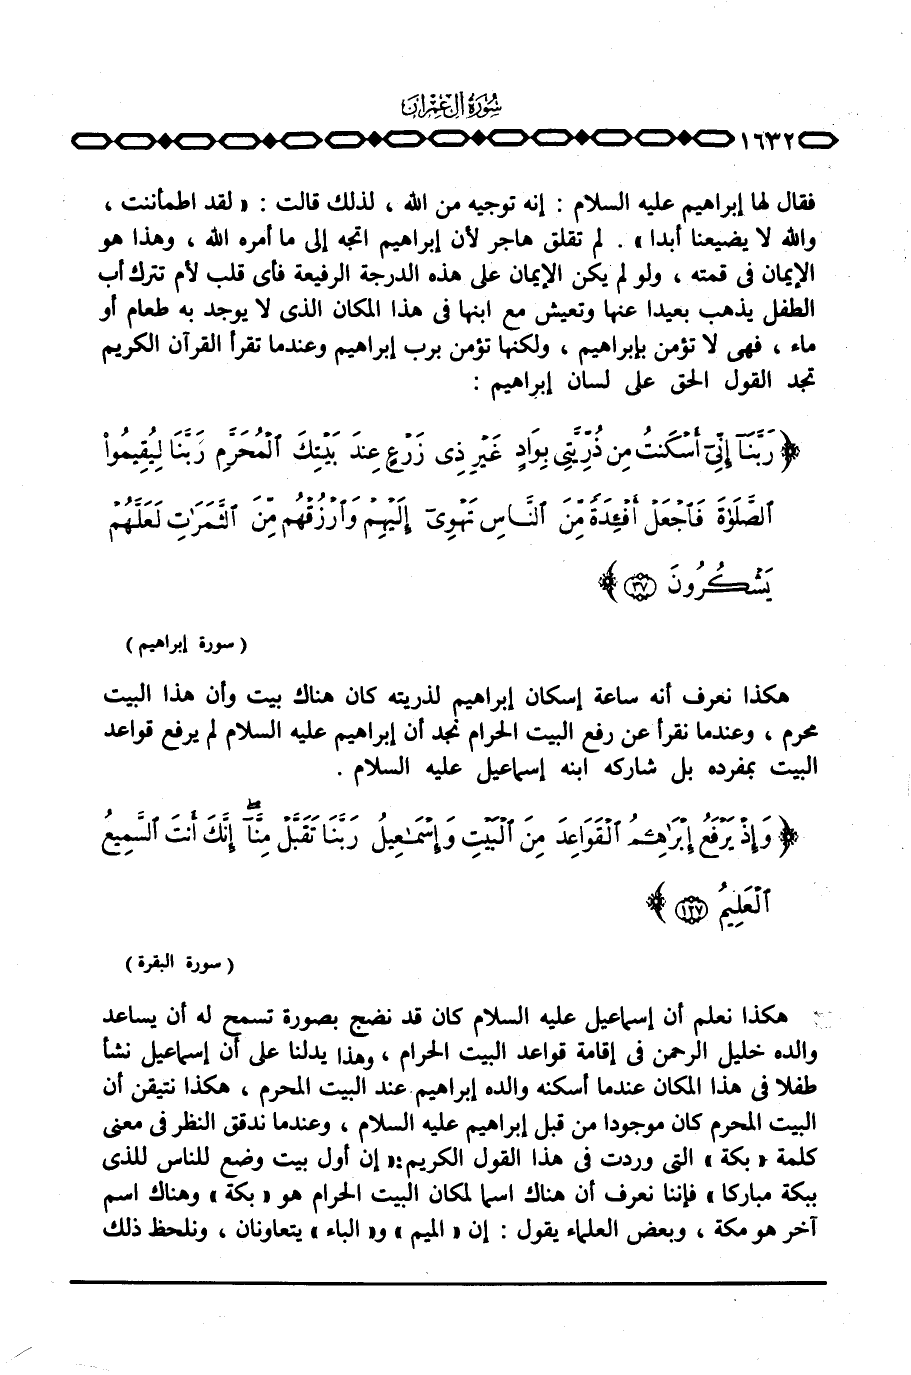 سورة آل عمران
١٦٣٢
فقال لها إبراهيم عليه السلام : إنه توجيه من الله ، لذلك قالت : « لقد اطمأننت ،
والله لا يضيعنا أبدا » . لم تقلق هاجر لأن إبراهيم اتجه إلى ما أمره الله ، وهذا هو
الإيمان فى قمته ، ولو لم يكن الإيمان على هذه الدرجة الرفيعة فأى قلب لأم تترك أب
الطفل يذهب بعيدا عنها وتعيش مع ابنها فى هذا المكان الذى لا يوجد به طعام أو
ماء ، فهى لا تؤمن بإبراهيم ، ولكنها تؤمن برب إبراهيم وعندما تقرأ القرآن الكريم
تجد القول الحق على لسان إبراهيم :
﴿ رَبَّنَآ إِنِّىٓ أَسْكَنتُ مِن ذُرِّيَّتِى بِوَادٍ غَيْرِ ذِى زَرْعٍ عِندَ بَيْتِكَ ٱلْمُحَرَّمِ رَبَّنَا لِيُقِيمُوا۟
ٱلصَّلَوٰةَ فَٱجْعَلْ أَفْـِٔدَةً مِّنَ ٱلنَّاسِ تَهْوِىٓ إِلَيْهِمْ وَٱرْزُقْهُم مِّنَ ٱلثَّمَرَٰتِ لَعَلَّهُمْ
يَشْكُرُونَ ٣٧ ﴾
( سورة إبراهيم )
هكذا نعرف أنه ساعة إسكان إبراهيم لذريته كان هناك بيت وأن هذا البيت
محرم ، وعندما نقرأ عن رفع البيت الحرام نجد أن إبراهيم عليه السلام لم يرفع قواعد
البيت بمفرده بل شاركه ابنه إسماعيل عليه السلام .
﴿ وَإِذْ يَرْفَعُ إِبْرَٰهِـۧمُ ٱلْقَوَاعِدَ مِنَ ٱلْبَيْتِ وَإِسْمَـٰعِيلُ رَبَّنَا تَقَبَّلْ مِنَّآ ۖ إِنَّكَ أَنتَ ٱلسَّمِيعُ
ٱلْعَلِيمُ ١٢٧ ﴾
( سورة البقرة )
هكذا نعلم أن إسماعيل عليه السلام كان قد نضج بصورة تسمح له أن يساعد
والده خليل الرحمن فى إقامة قواعد البيت الحرام ، وهذا يدلنا على أن إسماعيل نشأ
طفلا فى هذا المكان عندما أسكنه والده إبراهيم عند البيت المحرم ، هكذا نتيقن أن
البيت المحرم كان موجودا من قبل إبراهيم عليه السلام ، وعندما ندقق النظر فى معنى
كلمة « بكة » التى وردت فى هذا القول الكريم:« إن أول بيت وضع للناس للذى
ببكة مباركا » فإننا نعرف أن هناك اسما لمكان البيت الحرام هو « بكة » وهناك اسم
آخر هو مكة ، وبعض العلماء يقول : إن « الميم » و« الباء » يتعاونان ، ونلحظ ذلك